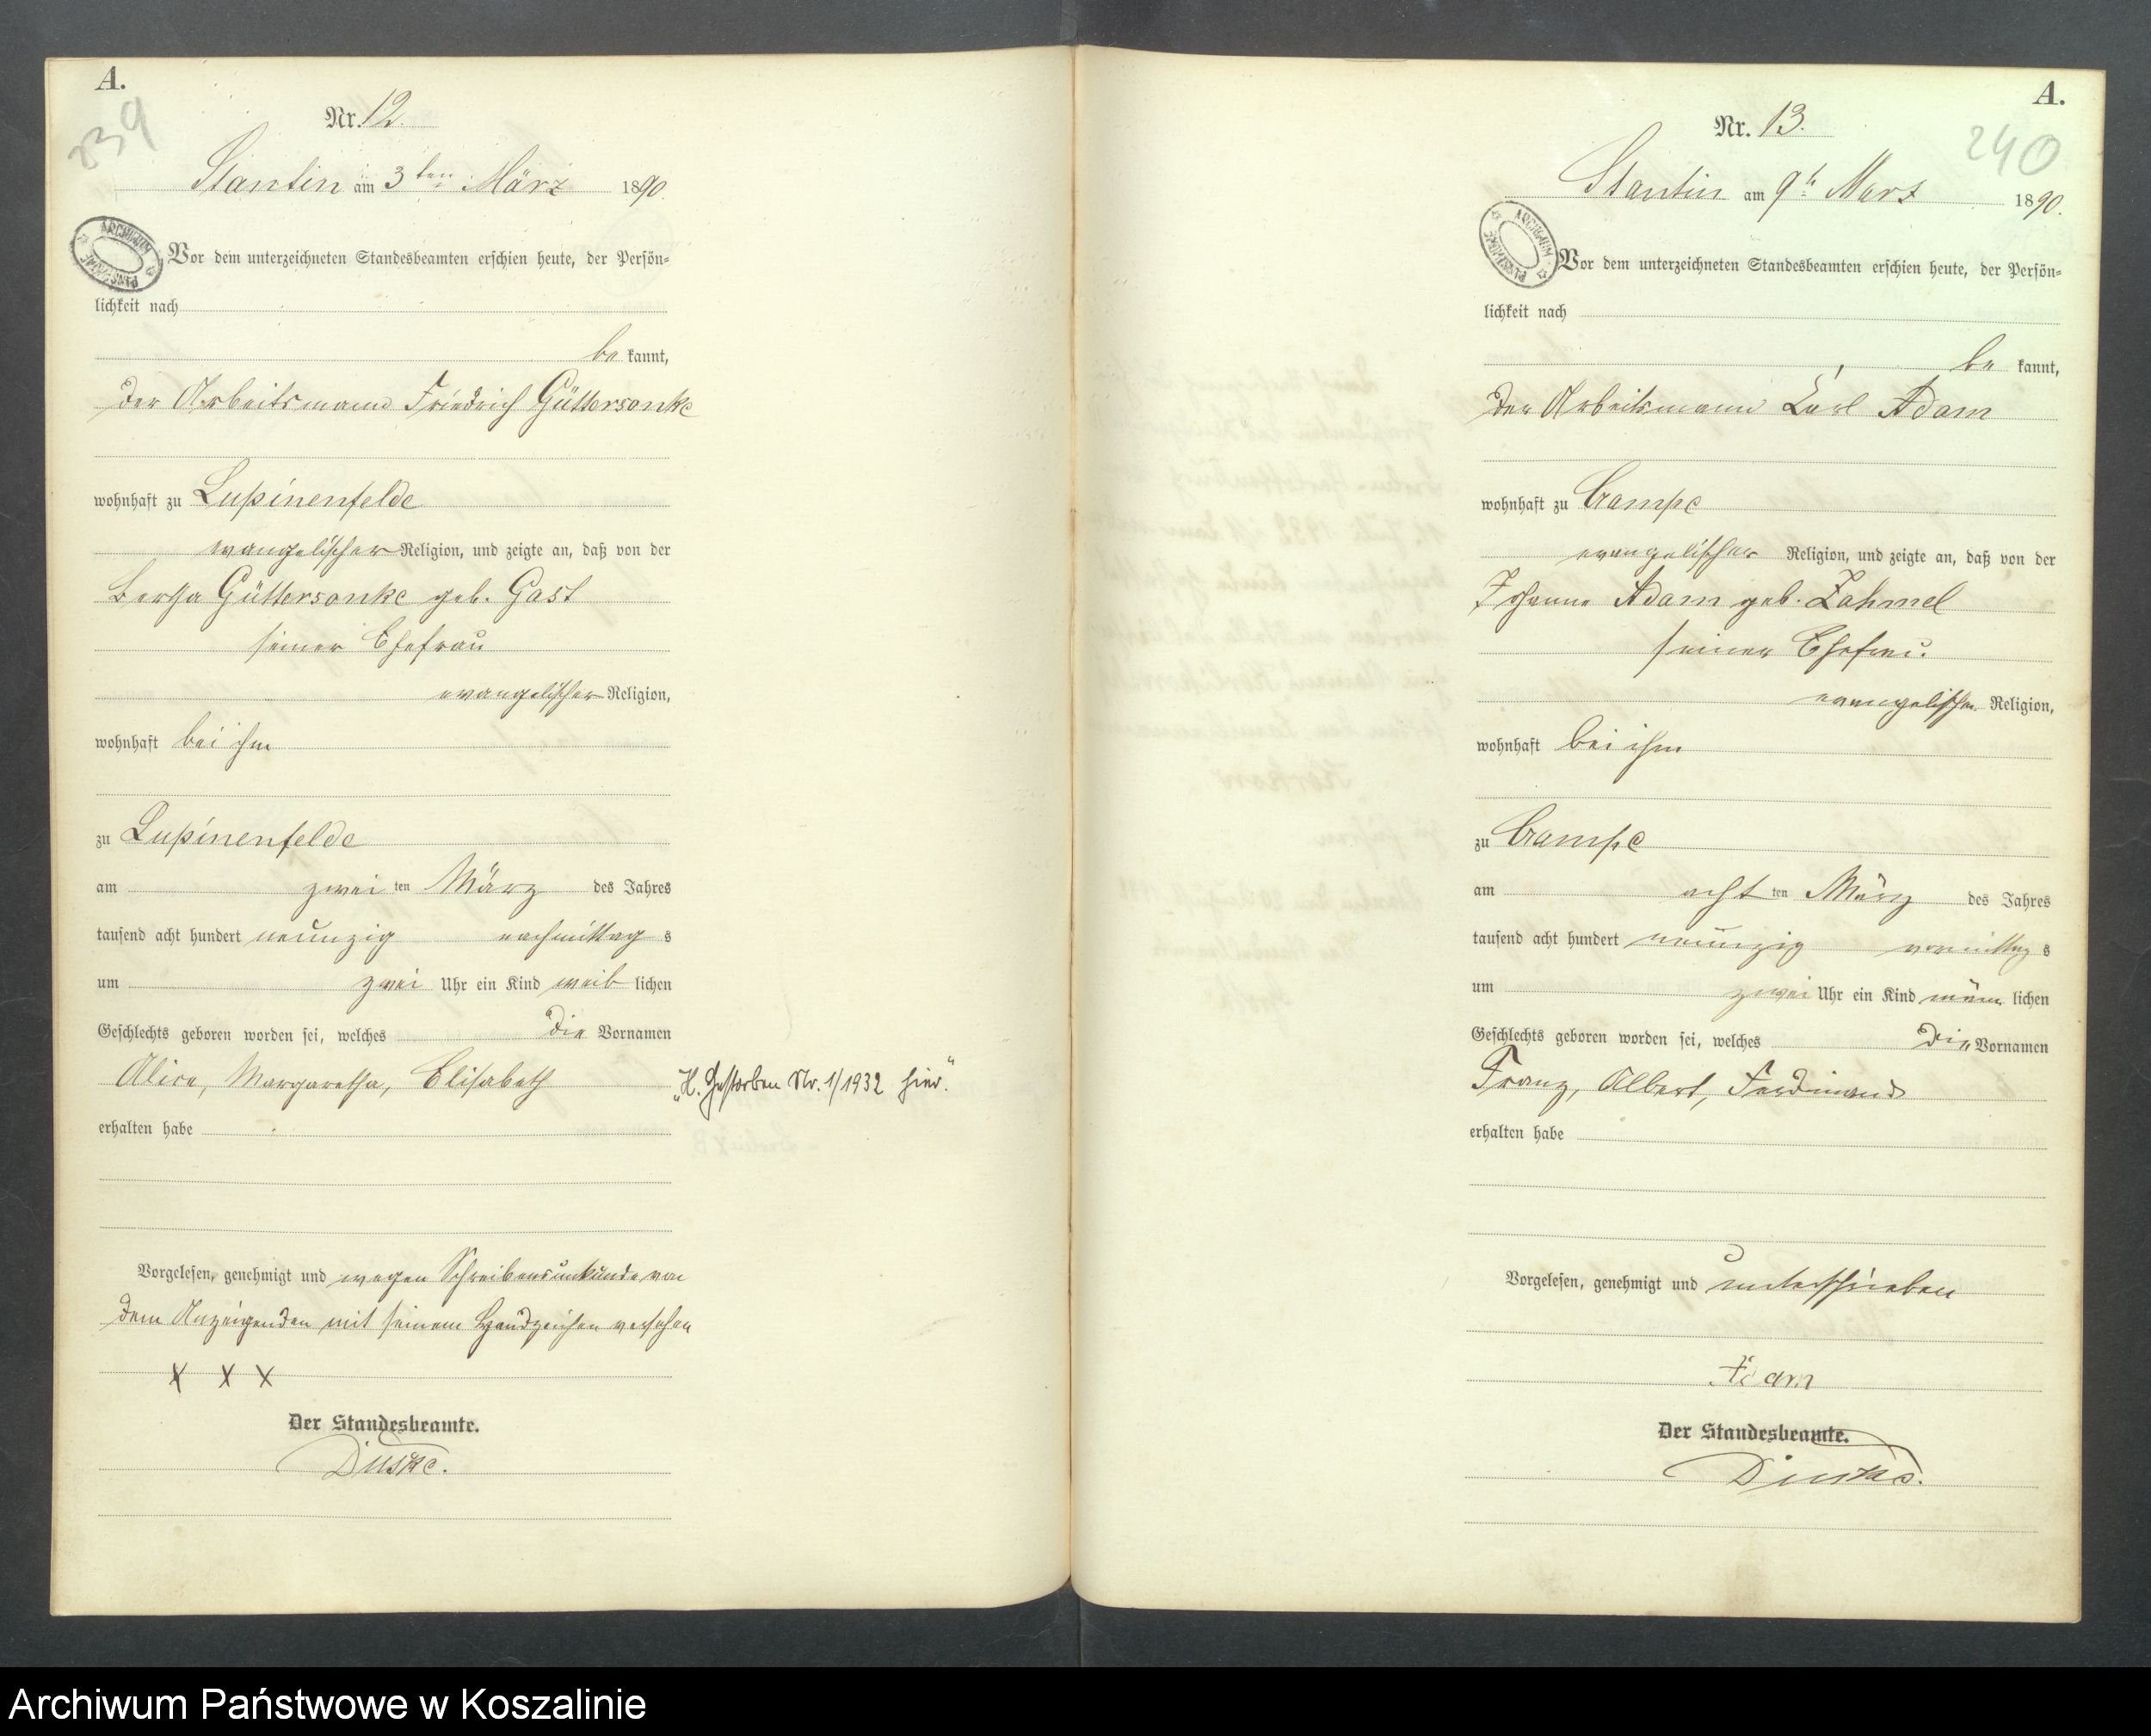 A.
239
Nr. 12.
Stantin am 3ten März 1890.
ARCHIWUM PAŃSTWOWE
Vor dem unterzeichneten Standesbeamten erschien heute, der Persön=
lichkeit nach
be kannt,
der Arbeitsmann Friedrich Güttersonke
wohnhaft zu Lupinenfelde
evangelischer Religion, und zeigte an, daß von der
Bertha Güttersonke geb. Gast
seiner Ehefrau
evangelischer Religion,
wohnhaft bei ihm
zu Lupinenfelde
am zwei ten März des Jahres
tausend acht hundert neunzig nachmittag s
um zwei Uhr ein Kind weib lichen
Geschlechts geboren worden sei, welches die Vornamen
Alice, Margaretha, Elisabeth
erhalten habe
Vorgelesen, genehmigt und wegen Schreibensunkunde von
dem Anzeigenden mit seinem Handzeichen versehen
X X X
Der Standesbeamte.
Duske.
„H. Gestorben Nr. 1/1932 hier."
A.
240
Nr. 13.
Stantin am 9t März 1890.
ARCHIWUM PAŃSTWOWE
Vor dem unterzeichneten Standesbeamten erschien heute, der Persön=
lichkeit nach
be kannt,
der Arbeitsmann Carl Adam
wohnhaft zu Gampe
evangelischer Religion, und zeigte an, daß von der
Johanne Adam geb. Zahmel
seiner Ehefrau.
evangelischer Religion,
wohnhaft bei ihm
zu Gampe
am acht ten März des Jahres
tausend acht hundert neunzig vormittag s
um zwei Uhr ein Kind männ lichen
Geschlechts geboren worden sei, welches die Vornamen
Franz, Albert, Ferdinand
erhalten habe
Vorgelesen, genehmigt und unterschrieben
Adam
Der Standesbeamte.
Duske.
Archiwum Państwowe w Koszalinie